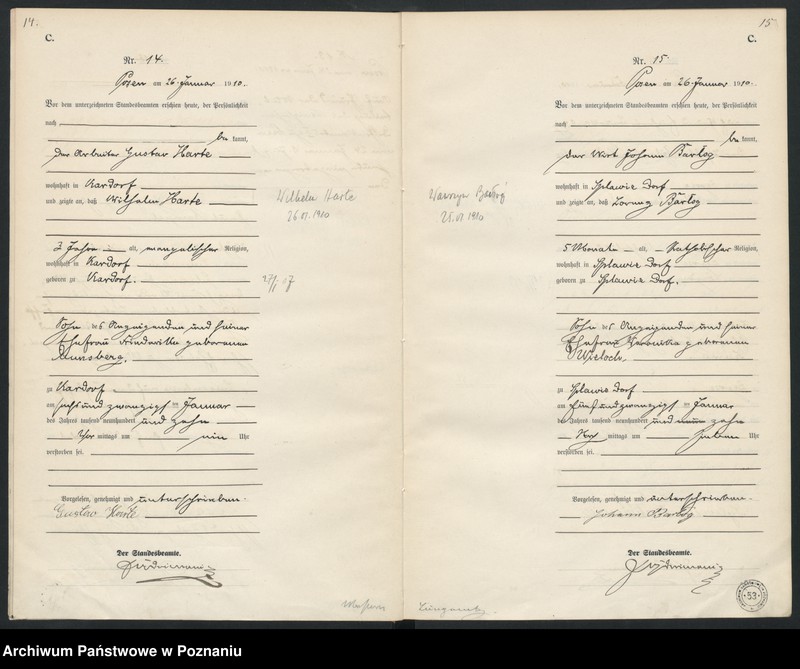 14.
C.
Nr. 14.
Posen am 26. Januar 1910.
Vor dem unterzeichneten Standesbeamten erschien heute, der Persönlichkeit
nach
be kannt,
der Arbeiter Gustav Harte
wohnhaft in Kardorf
und zeigte an, daß Wilhelm Harte
3 Jahre alt, evangelischer Religion,
wohnhaft in Kardorf
geboren zu Kardorf.
Sohn des Anzeigenden und seiner
Ehefrau Friederike geborenen
zu Kardorf
am sechs und zwanzigsten Januar
des Jahres tausend neunhundert und zehn
Vor mittags um ein Uhr
verstorben sei.
Vorgelesen, genehmigt und unterschrieben.
Gustav Harte
Der Standesbeamte.
Wilhelm Harte
26 01. 1910
27/1 07
15
C.
Nr. 15.
Posen am 26. Januar 1910.
Vor dem unterzeichneten Standesbeamten erschien heute, der Persönlichkeit
nach
be kannt,
der Wirt Johann Barłog
wohnhaft in Splawie Dorf
und zeigte an, daß Lorenz Barłog
5 Monate alt, Katholischer Religion,
wohnhaft in Splawie Dorf
geboren zu Splawie Dorf.
Sohn des Anzeigenden und seiner
Ehefrau Veronika geborenen
zu Splawie Dorf
am fünf und zwanzigsten Januar
des Jahres tausend neunhundert und zehn
Nach mittags um sieben Uhr
verstorben sei.
Vorgelesen, genehmigt und unterschrieben.
Johann Barłog
Der Standesbeamte.
Wawrzyn Barłog
25. 01 1910.
53
Archiwum Państwowe w Poznaniu